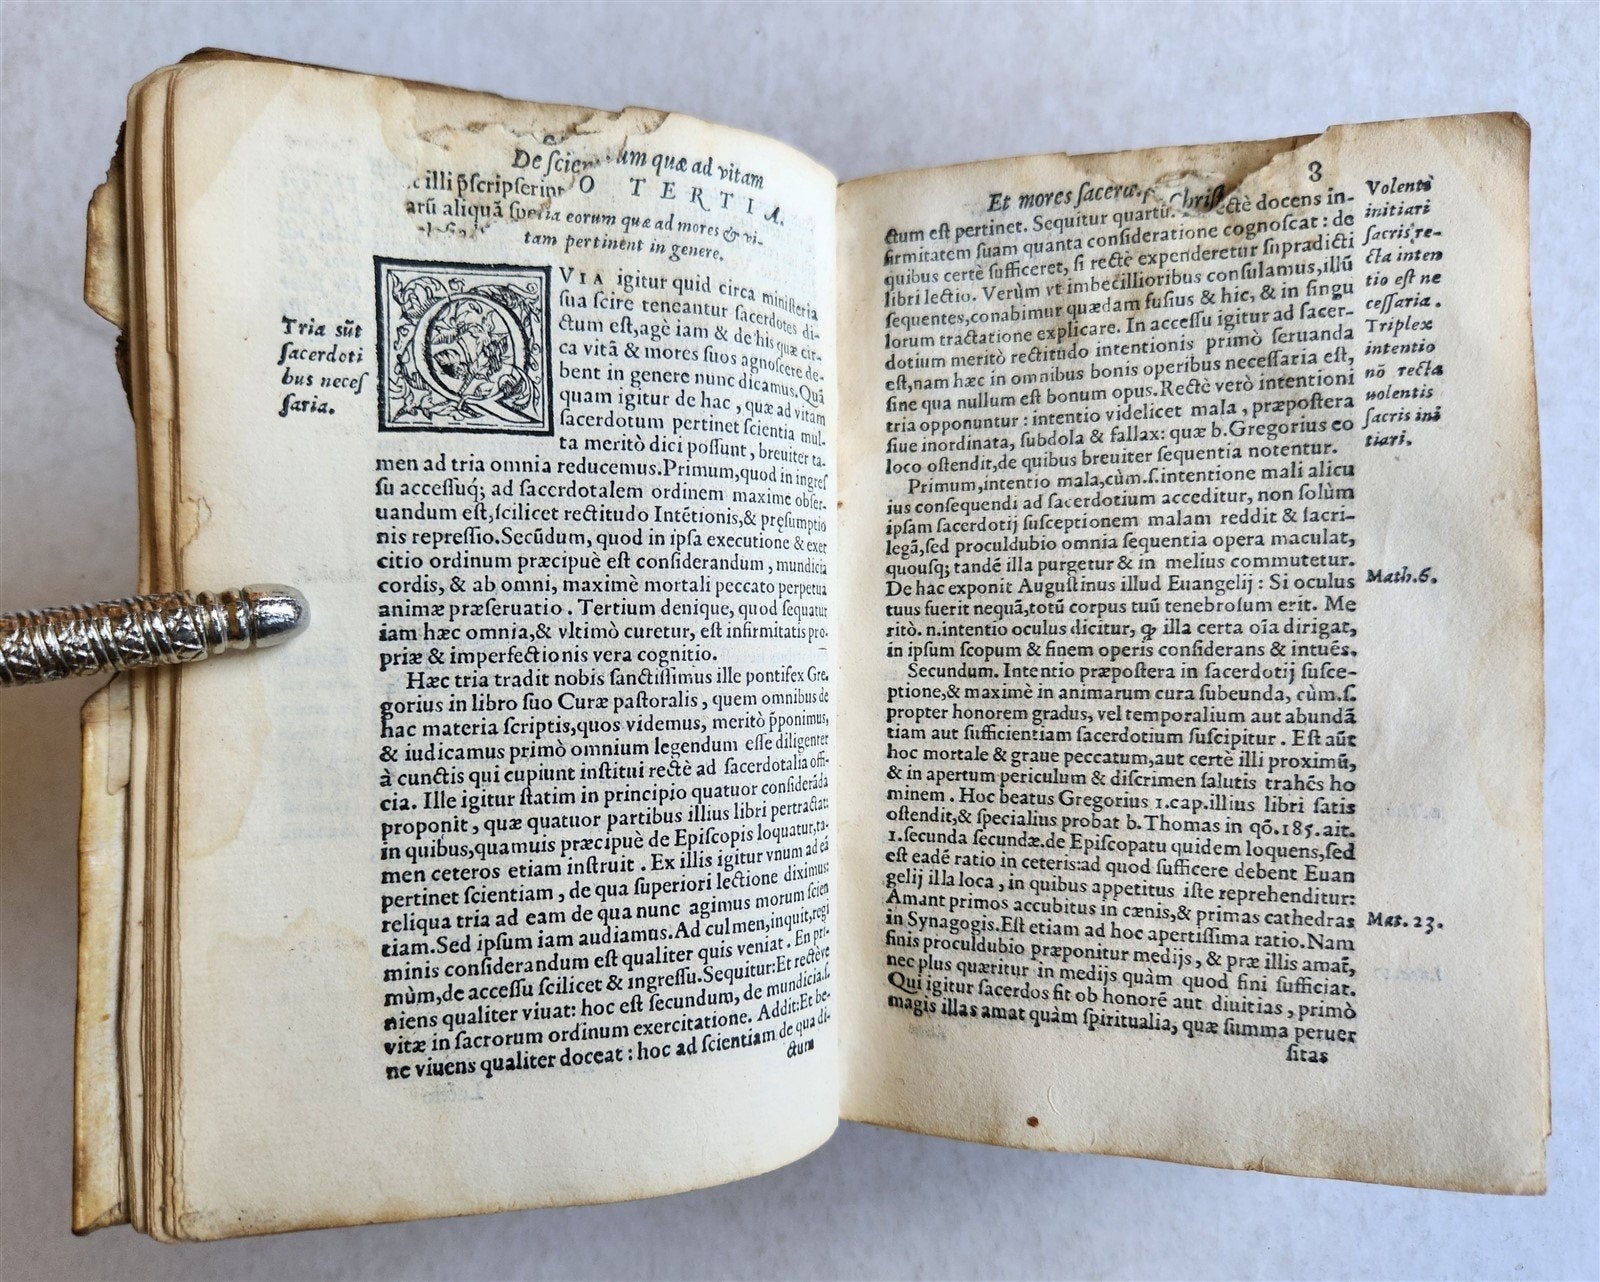 De scien um quæ ad vitam
illi p̄scripserint O TERTIA.
arū aliquā eorum quæ ad mores & vi-
tam pertinent in genere.
Tria sūt
sacerdoti
bus neceſ
ſaria.
QVIA igitur quid circa miniſteria
ſua ſcire teneantur ſacerdotes di-
ctum eſt, agè iam & de his quæ cir-
ca vitā & mores ſuos agnoſcere de-
bent in genere nunc dicamus. Quā
quam igitur de hac, quæ ad vitam
ſacerdotum pertinet ſcientia mul-
ta meritò dici poſſunt, breuiter ta-
men ad tria omnia reducemus. Primum, quod in ingreſ
ſu acceſſuq; ad ſacerdotalem ordinem maxime obſer-
uandum eſt, ſcilicet rectitudo Intētionis, & preſumptio
nis repreſſio. Secūdum, quod in ipſa executione & exer
citio ordinum præcipuè eſt conſiderandum, mundicia
cordis, & ab omni, maximè mortali peccato perpetua
animæ præſeruatio. Tertium denique, quod ſequatur
iam hæc omnia, & vltimò curetur, eſt infirmitatis pro-
priæ & imperfectionis vera cognitio.
Hæc tria tradit nobis ſanctiſſimus ille pontifex Gre-
gorius in libro ſuo Curæ paſtoralis, quem omnibus de
hac materia ſcriptis, quos videmus, meritò p̄ponimus,
& iudicamus primò omnium legendum eſſe diligenter
à cunctis qui cupiunt inſtitui rectè ad ſacerdotalia offi-
cia. Ille igitur ſtatim in principio quatuor conſiderāda
proponit, quæ quatuor partibus illius libri pertractat:
in quibus, quamuis præcipuè de Epiſcopis loquatur, ta-
men ceteros etiam inſtruit. Ex illis igitur vnum ad eā
pertinet ſcientiam, de qua ſuperiori lectione diximus:
reliqua tria ad eam de qua nunc agimus morum ſcien
tiam. Sed ipſum iam audiamus. Ad culmen, inquit, regi
minis conſiderandum eſt qualiter quis veniat. En pri-
mùm, de acceſſu ſcilicet & ingreſſu. Sequitur: Et rectève
niens qualiter viuat: hoc eſt ſecundum, de mundicia.ſ.
vitæ in ſacrorum ordinum exercitatione. Addit: Et be-
ne viuens qualiter doceat: hoc ad ſcientiam de qua di-
ctum
3
Et mores sacerd. Chriſt
ctum eſt pertinet. Sequitur quartū. rectè docens in-
firmitatem ſuam quanta conſideratione cognoſcat: de
quibus certè ſufficeret, ſi rectè expenderetur ſupradicti
libri lectio. Verùm vt imbecillioribus conſulamus, illū
ſequentes, conabimur quædam fuſius & hic, & in ſingu
lorum tractatione explicare. In acceſſu igitur ad ſacer-
dotium meritò rectitudo intentionis primò ſeruanda
eſt, nam hæc in omnibus bonis operibus neceſſaria eſt,
ſine qua nullum eſt bonum opus. Rectè verò intentioni
tria opponuntur: intentio videlicet mala, præpoſtera
ſiue inordinata, ſubdola & fallax: quæ b. Gregorius eo
loco oſtendit, de quibus breuiter ſequentia notentur.
Volentē
initiari
ſacris re-
cta inten
tio eſt ne
ceſſaria.
Triplex
intentio
nō recta
uolentis
ſacris ini
tiari.
Primum, intentio mala, cùm.ſ. intentione mali alicu
ius conſequendi ad ſacerdotium acceditur, non ſolùm
ipſam ſacerdotij ſuſceptionem malam reddit & ſacri-
legā, ſed proculdubio omnia ſequentia opera maculat,
quouſq; tandē illa purgetur & in melius commutetur.
De hac exponit Auguſtinus illud Euangelij: Si oculus
tuus fuerit nequā, totū corpus tuū tenebroſum erit. Me
ritò.n.intentio oculus dicitur, ꝙ illa certa oīa dirigat,
in ipſum ſcopum & finem operis conſiderans & intuēs.
Math. 6.
Secundum. Intentio præpoſtera in ſacerdotij ſuſce-
ptione, & maximè in animarum cura ſubeunda, cùm.ſ.
propter honorem gradus, vel temporalium aut abundā
tiam aut ſufficientiam ſacerdotium ſuſcipitur. Eſt aūt
hoc mortale & graue peccatum, aut certè illi proximū,
& in apertum periculum & diſcrimen ſalutis trahēs ho
minem. Hoc beatus Gregorius 1. cap. illius libri ſatis
oſtendit, & ſpecialius probat b. Thomas in qō. 185. ait.
1. ſecunda ſecundæ. de Epiſcopatu quidem loquens, ſed
eſt eadē ratio in ceteris: ad quod ſufficere debent Euan
gelij illa loca, in quibus appetitus iſte reprehenditur:
Amant primos accubitus in cænis, & primas cathedras
in Synagogis. Eſt etiam ad hoc apertiſſima ratio. Nam
finis proculdubio præponitur medijs, & præ illis amat̄,
nec plus quæritur in medijs quàm quod fini ſufficiat.
Qui igitur ſacerdos fit ob honorē aut diuitias, primò
magis illas amat quàm ſpiritualia, quæ ſumma peruer
ſitas
Mat. 23.